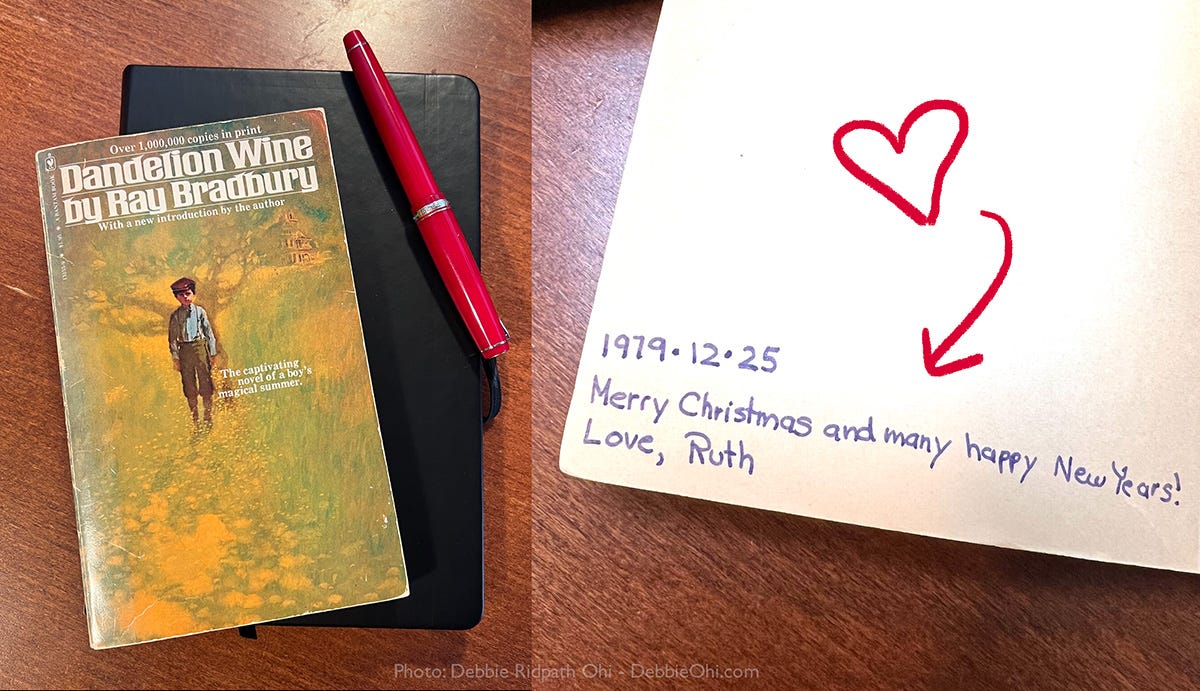 Over 1,000,000 copies in print
Dandelion Wine
by Ray Bradbury
With a new introduction by the author
The captivating
novel of a boy's
magical summer.
A BANTAM BOOK
1979·12·25
Merry Christmas and many happy New Years!
Love, Ruth
Photo: Debbie Ridpath Ohi - DebbieOhi.com